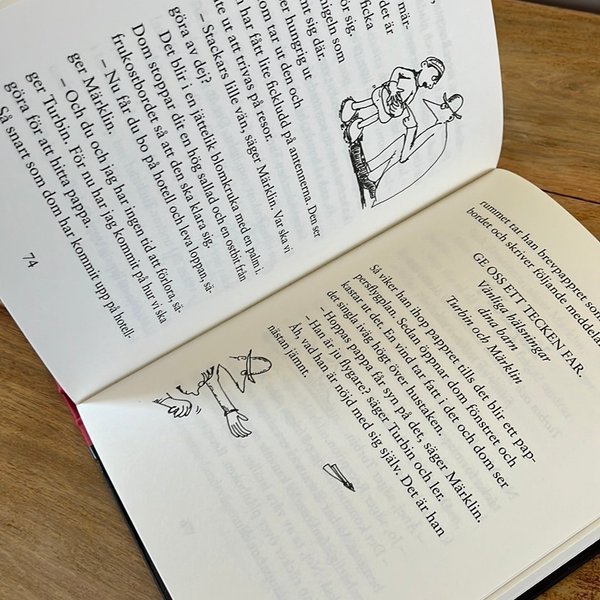 mär-
det är
ficka
för sig.
igeln som
tar ur den och
er hungrig ut
mt sig där.
n har fått lite fickludd på antennerna. Den ser
te ut att trivas på resor.
– Stackars lille vän, säger Märklin. Var ska vi
göra av dej?
Det blir i en jättelik blomkruka med en palm i.
Dom stoppar dit en hög sallad och en ostbit från
frukostbordet så att den ska klara sig.
– Nu får du bo på hotell och leva loppan, sä-
ger Märklin.
– Och du och jag har ingen tid att förlora, sä-
ger Turbin. För nu har jag kommit på hur vi ska
göra för att hitta pappa.
Så snart som dom har kommit upp på hotell-
74
rummet tar han brevpappret som
bordet och skriver följande meddela
GE OSS ETT TECKEN FAR.
Vänliga hälsningar
dina barn
Turbin och Märklin
Så viker han ihop pappret tills det blir ett pap-
persflygplan. Sedan öppnar dom fönstret och
kastar ut det. En vind tar fatt i det och dom ser
det singla iväg högt över hustaken.
– Hoppas pappa får syn på det, säger Märklin.
– Han är ju flygare? säger Turbin och ler.
Åh, vad han är nöjd med sig själv. Det är han
nästan jämnt.